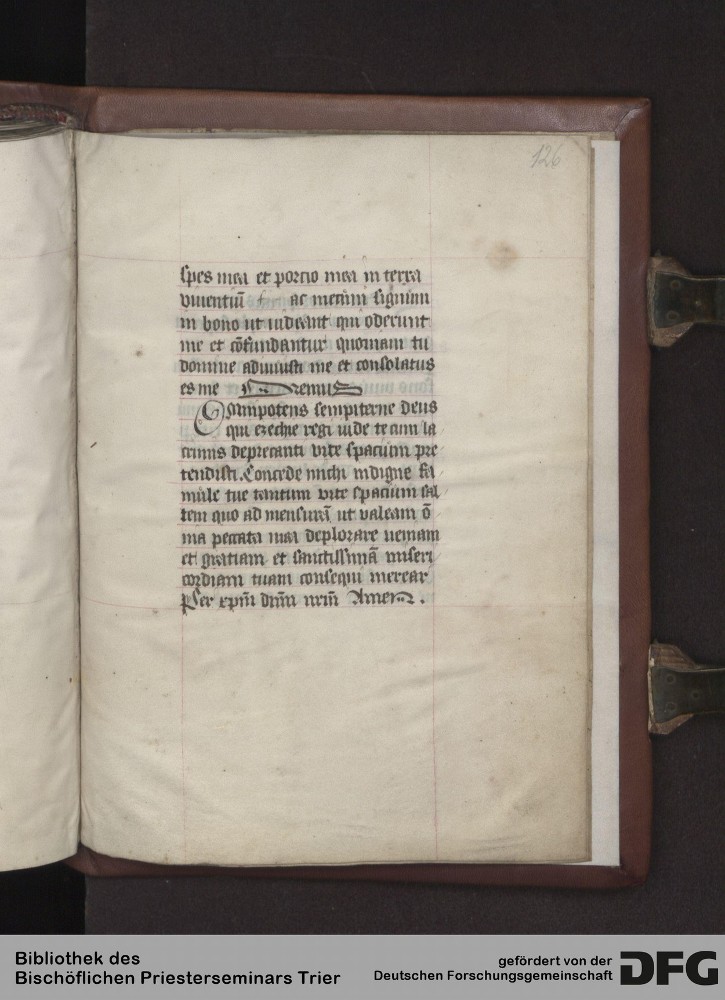 126
spes mea et porcio mea in terra
viuentiū f ac mecum signum
in bono ut uideant qui oderunt
me et cōfundantur quoniam tu
domine adiuuisti me et consolatus
es me Oremus
Omnipotens sempiterne deus
qui ezechie regi iude te cum la
crimis deprecanti vite spacium pre
tendisti. Concede michi indigne fa
mule tue tantum vite spacium sal
tem quo ad mensurā ut valeam ō
nia peccata mea deplorare ueniam
et gratiam et sanctissimā miseri
cordiam tuam consequi merear
Per xpm̄ dn̄m nrm̄ Amen.
Bibliothek des
Bischöflichen Priesterseminars Trier
gefördert von der
Deutschen Forschungsgemeinschaft
DFG